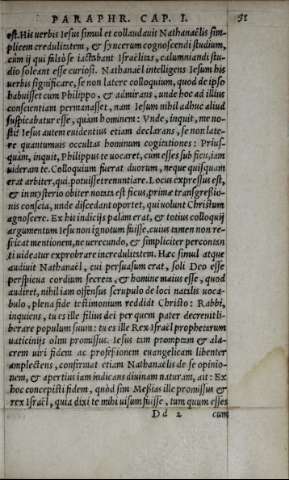 PARAPHR. CAP. I. 51
est. His verbis Iesus simul et collaudauit Nathanaëlis sim-
plicem credulitatem, & syncerum cognoscendi studium,
cùm ij qui falsò se iactabant Israëlitas, calumniandi stu-
dio soleant esse curiosi. Nathanaël intelligens Iesum his
uerbis significare, se non latere colloquium, quod de ipso
habuisset cum Philippo, & admirans, unde hoc ad illius
conscientiam permanasset, nam Iesum nihil adhuc aliud
suspicabatur esse, quàm hominem: Vnde, inquit, me no-
sti? Iesus autem euidentius etiam declarans, se non late-
re quantumuis occultas hominum cogitationes: Prius-
quàm, inquit, Philippus te uocaret, cum esses sub ficu, iam
uideram te. Colloquium fuerat duorum, neque quisquam
erat arbiter, qui potuisset renuntiare. Locus expressus est,
& in mysterio obiter notata est ficus, primæ transgressio-
nis conscia, unde discedant oportet, qui uolunt Christum
agnoscere. Ex his indicijs palam erat, & totius colloquij
argumentum Iesu non ignotum fuisse, cuius tamen non re-
fricat mentionem, ne uerecundo, & simpliciter percontan
ti uideatur exprobrare incredulitatem. Hæc simul atque
audiuit Nathanaël, cui persuasum erat, soli Deo esse
perspicua cordium secreta, & homine maius esse, quod
audiret, nihil iam offensus scrupulo de loci natalis uoca-
bulo, plena fide testimonium reddidit Christo: Rabbi,
inquiens, tu es ille filius dei per quem pater decreuit li-
berare populum suum: tu es ille Rex Israël prophetarum
uaticinijs olim promissus. Iesus tam promptam & ala-
crem uiri fidem ac professionem euangelicam libenter
amplectens, confirmat etiam Nathanaëlis de se opinio-
nem, & apertius iam indicans diuinam naturam, ait: Ex
hoc concepisti fidem, quòd sim Messias ille promissus &
rex Israël, quia dixi te mihi uisum fuisse, tum quum esses
D d 2 cum